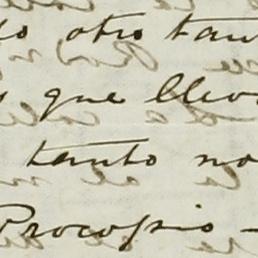 otro tan
que llev
tanto no
Procopio -